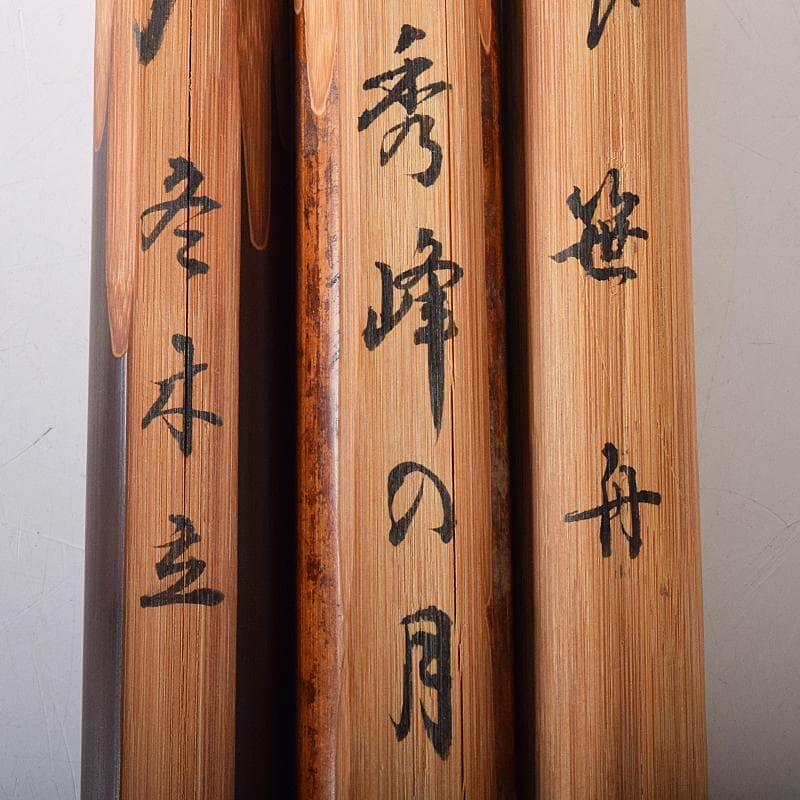 笹舟
秀峰の月
冬木立